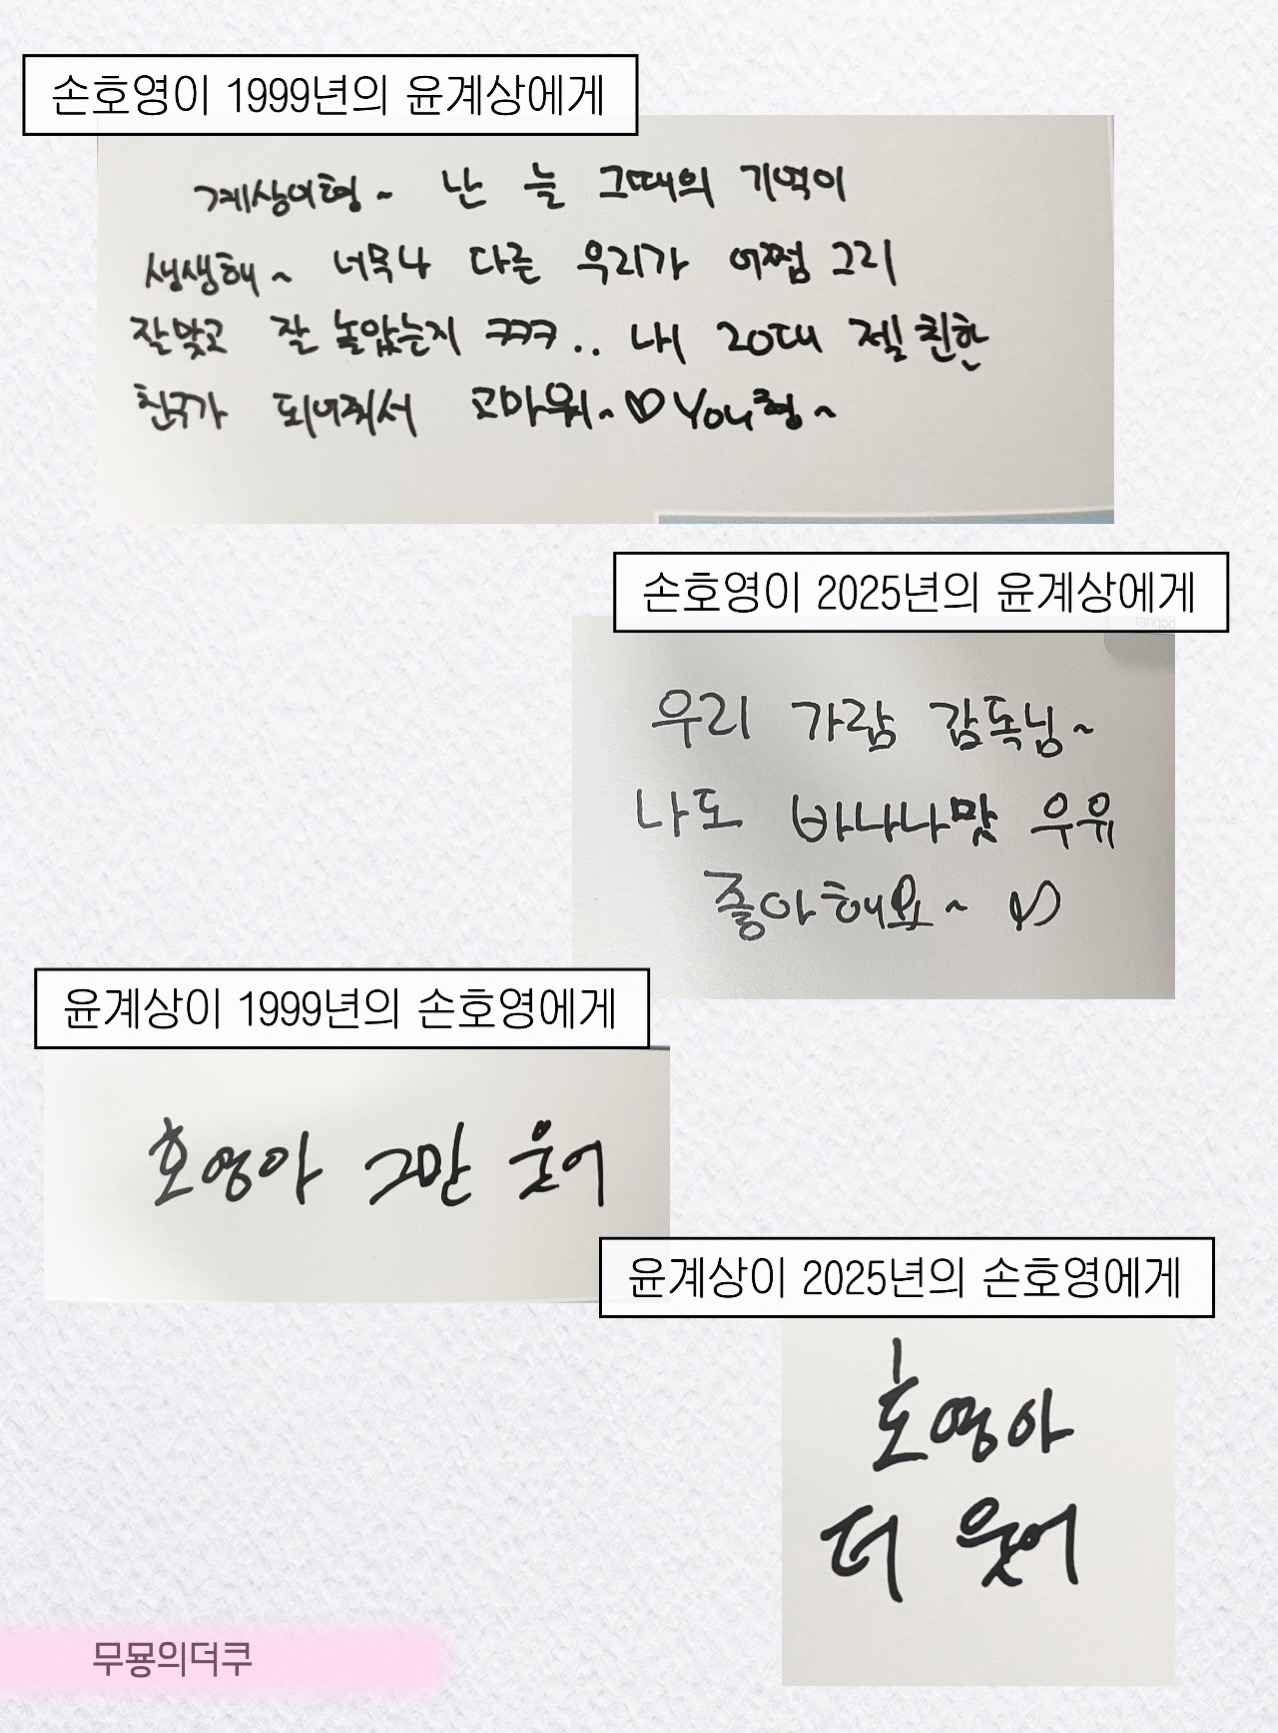 손호영이 1999년의 윤계상에게
계상이형~ 난 늘 그때의 기억이
생생해~ 너무나 다른 우리가 어쩜 그리
잘맞고 잘 놀았는지 ㅋㅋㅋ.. 내 20대 젤 친한
친구가 되어줘서 고마워~♡ You형~
손호영이 2025년의 윤계상에게
fangod
우리 가람 감독님~
나도 바나나맛 우유
좋아해요~ ♡
윤계상이 1999년의 손호영에게
호영아 그만 웃어
윤계상이 2025년의 손호영에게
호영아
더 웃어
무묭의더쿠